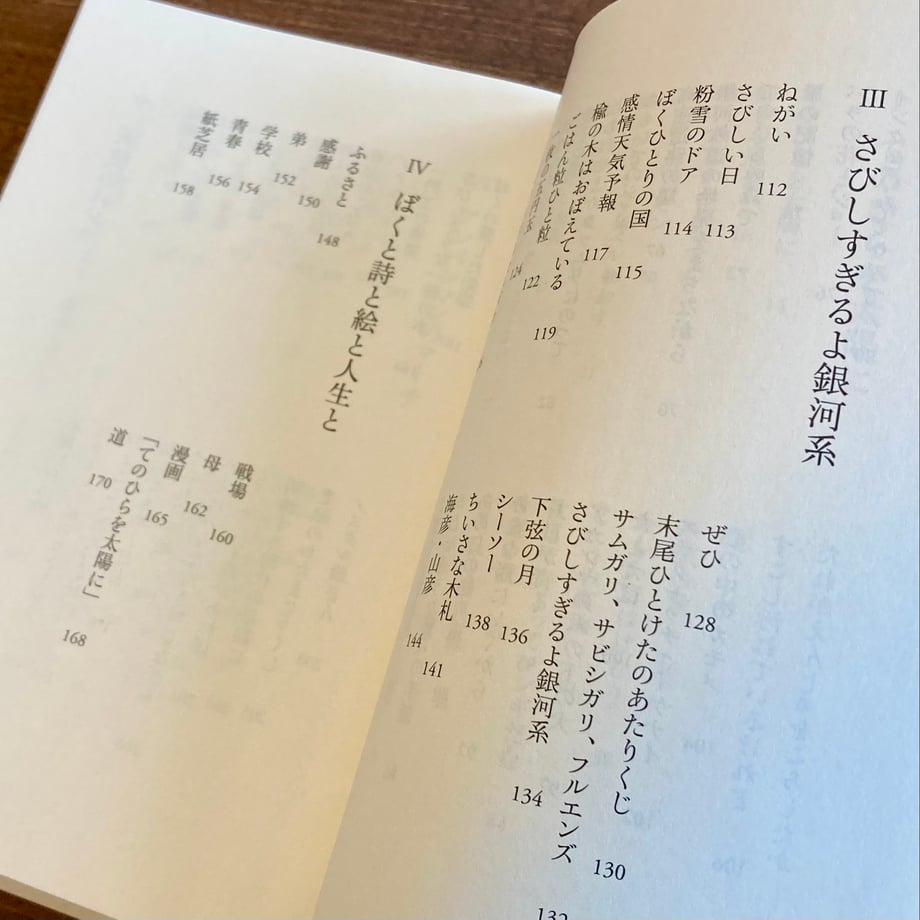 III さびしすぎるよ銀河系
ねがい 112
さびしい日 113
粉雪のドア 114
ぼくひとりの国 115
感情天気予報 117
楡の木はおぼえている 119
ごはん粒ひと粒 122
枚の五円玉 124
ぜひ 128
末尾ひとけたのあたりくじ 130
サムガリ、サビシガリ、フルエンズ 132
さびしすぎるよ銀河系 134
下弦の月 136
シーソー 138
ちいさな木札 141
海彦・山彦 144
IV ぼくと詩と絵と人生と
ふるさと 148
感謝 150
弟 152
学校 154
青春 156
紙芝居 158
戦場 160
母 162
漫画 165
「てのひらを太陽に」 168
道 170